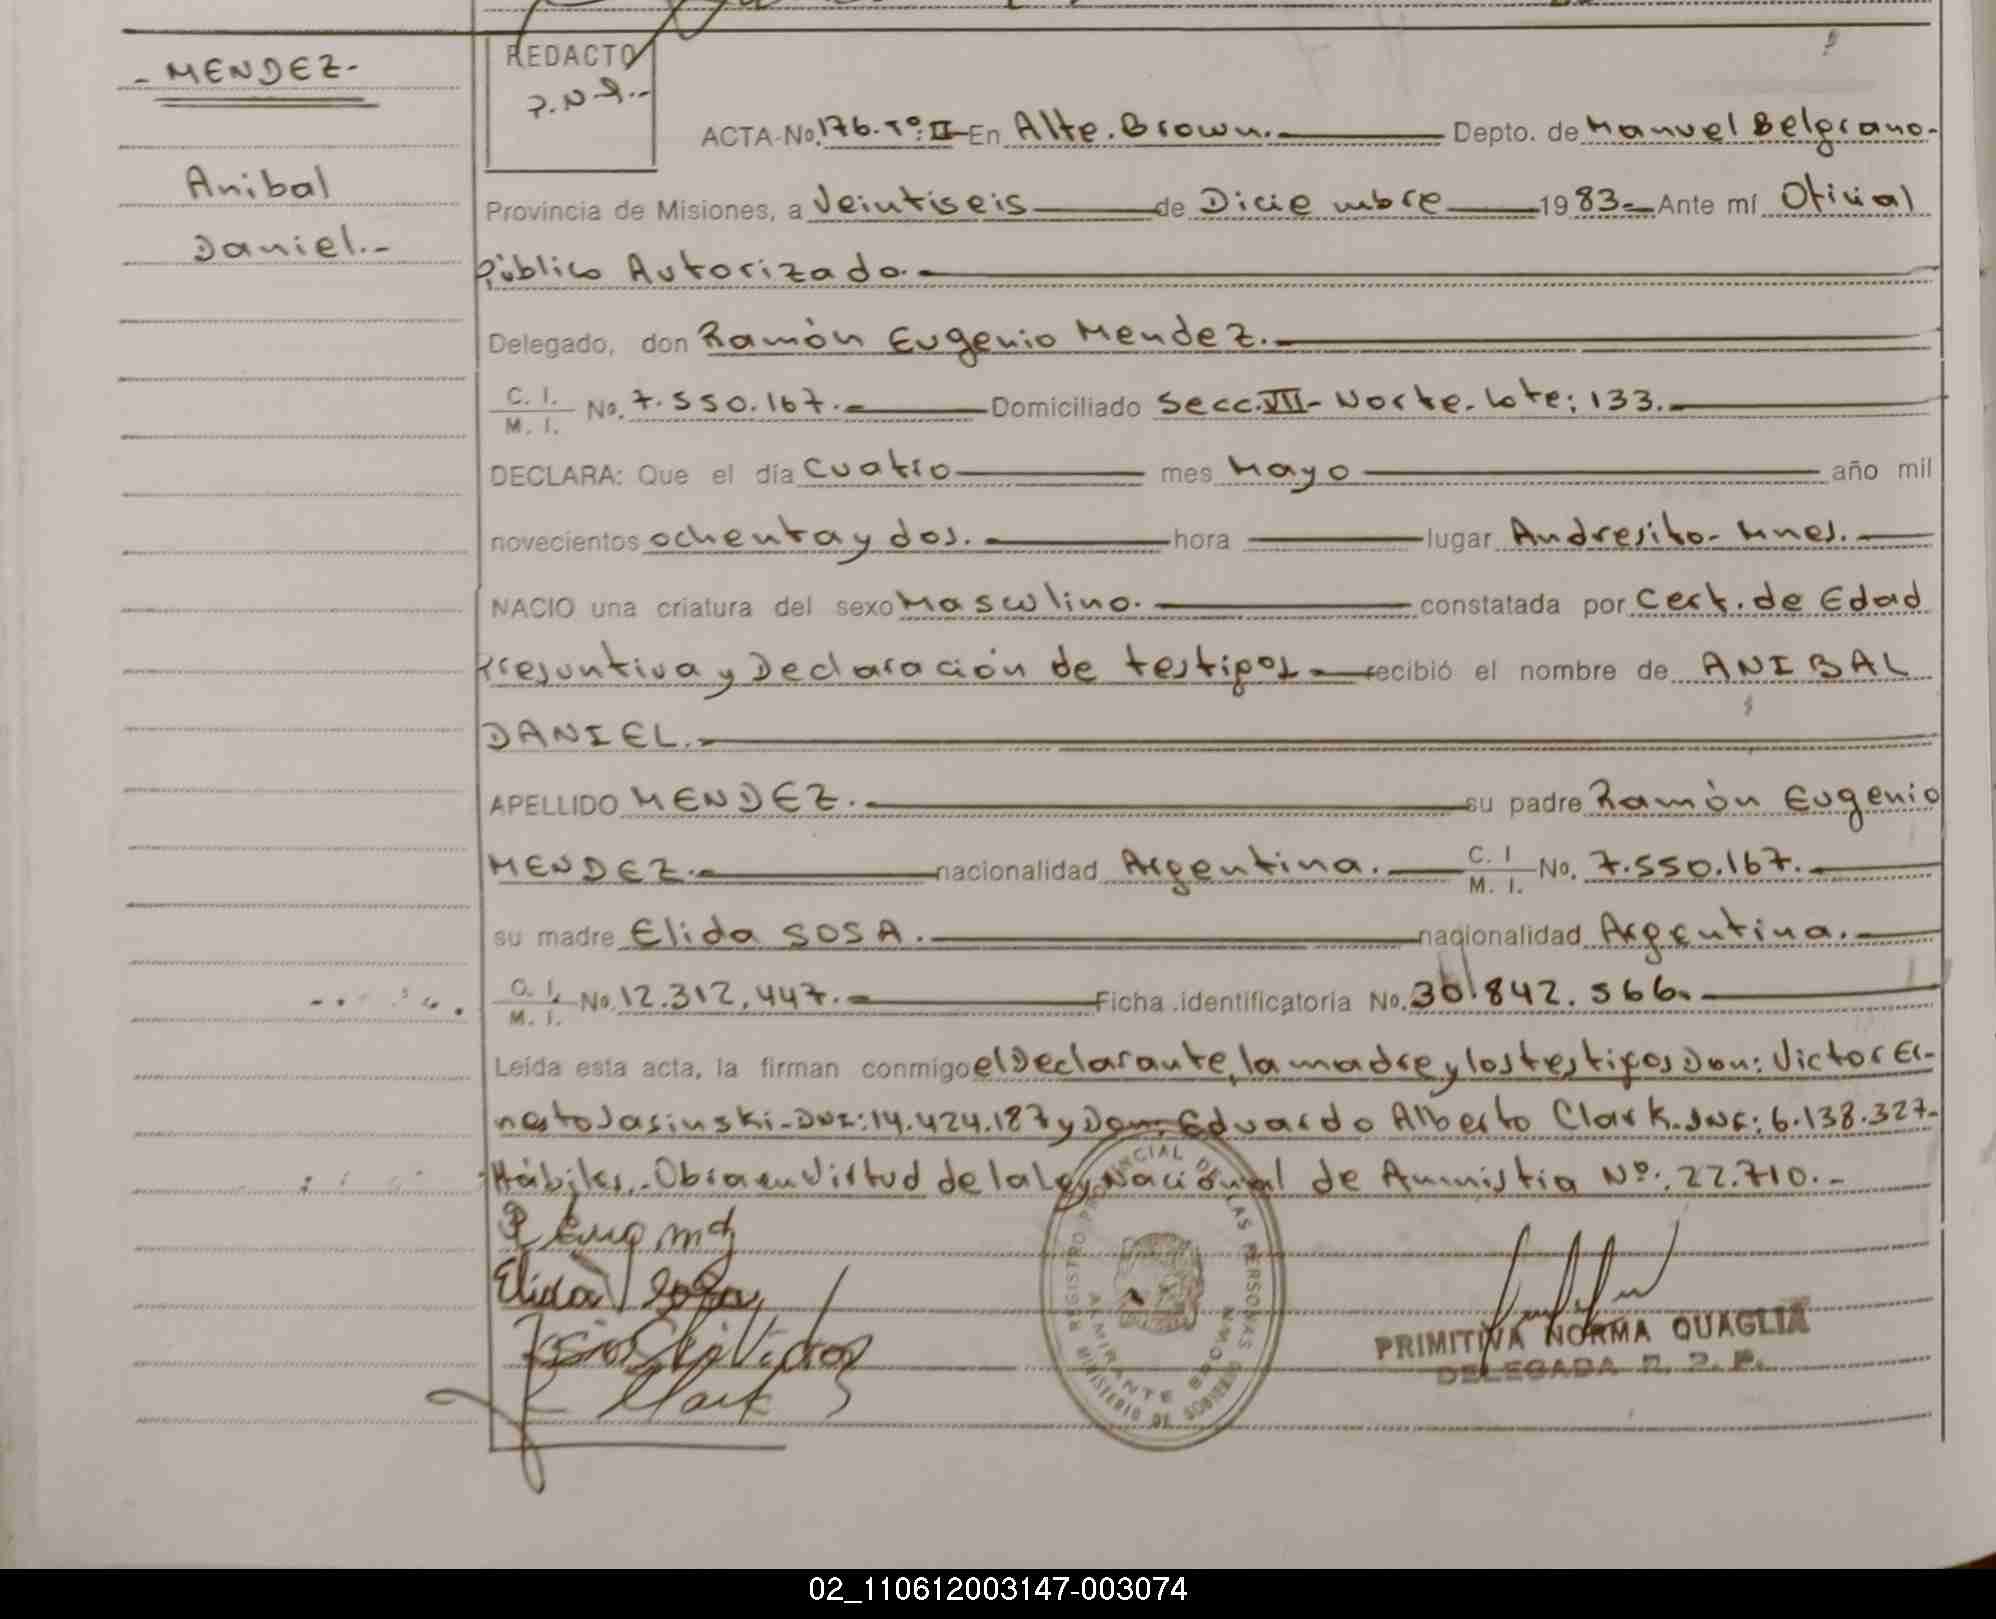 - MENDEZ -
Anibal
Daniel.-
REDACTO
P.N.Q.-
ACTA-No. 176. Tº: II - En Alte. Brown. Depto. de Manuel Belgrano-
Provincia de Misiones, a Veintiseis de Diciembre 1983- Ante mí Oficial
Público Autorizado.-
Delegado, don Ramón Eugenio Mendez.-
C. I. / M. I. No. 7.550.167.- Domiciliado Secc. VII- Norte- Lote: 133.-
DECLARA: Que el día Cuatro mes Mayo año mil
novecientos ochenta y dos.- hora lugar Andresito- Mnes.-
NACIO una criatura del sexo Masculino.- constatada por Cert. de Edad
Presuntiva y Declaración de testigos- recibió el nombre de ANIBAL
DANIEL.-
APELLIDO MENDEZ.- su padre Ramón Eugenio
MENDEZ.- nacionalidad Argentina.- C. I / M. I. No. 7.550.167.-
su madre Elida SOSA.- nacionalidad Argentina.-
C. I. / M. I. No. 12.312.447.- Ficha identificatoria No. 30.842.566.-
Leída esta acta, la firman conmigo el Declarante, la madre y los testigos Don: Victor Er-
nesto Jasinski- DNI: 14.424.187 y Don: Eduardo Alberto Clark- DNI: 6.138.327-
Hábiles.- Obra en Virtud de la Ley Nacional de Amnistia Nº: 22.710.-
Elida Sosa
Jasinski Victor
Clark
REGISTRO PROVINCIAL DE LAS PERSONAS
MINISTERIO DE GOBIERNO
ALMIRANTE BROWN
PRIMITIVA NORMA QUAGLIA
DELEGADA R. P. P.
02_110612003147-003074